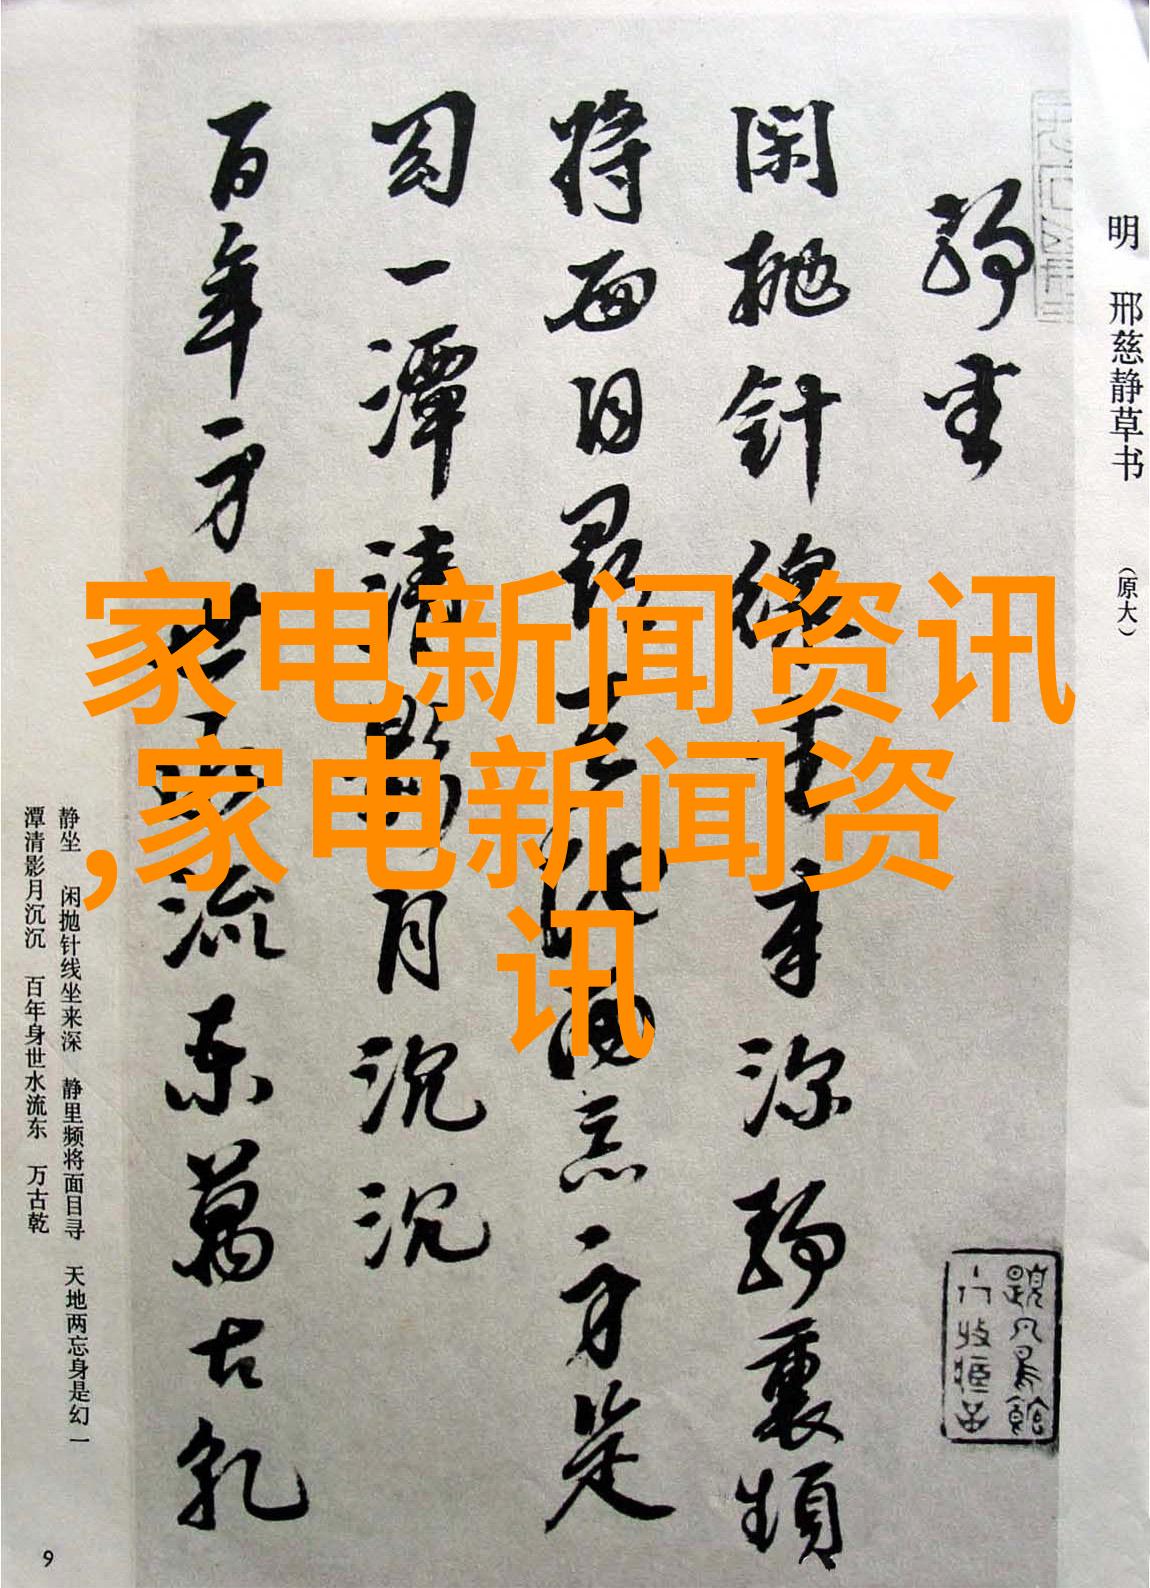 明 邢慈静草书 （原大）
静坐
闲抛针线坐来深静里频
将面目寻天地两忘身是
幻一潭清影月沉沉
百年身世水流东万古乾
静坐 闲抛针线坐来深 静里频将面目寻 天地两忘身是幻一
潭清影月沉沉 百年身世水流东 万古乾
9
家电新闻资讯
,家电新闻资
讯